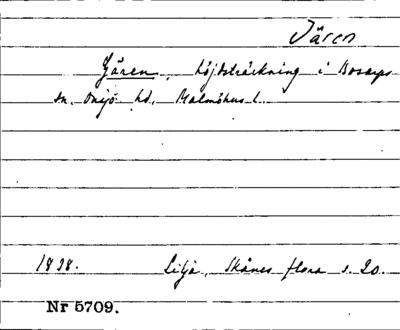 Jären
Gjären, höjdsträckning i Bosarps
sn. Onsjö hd. Malmöhus l.
1838. Lilja, Skånes flora s. 20.
Nr 5709.